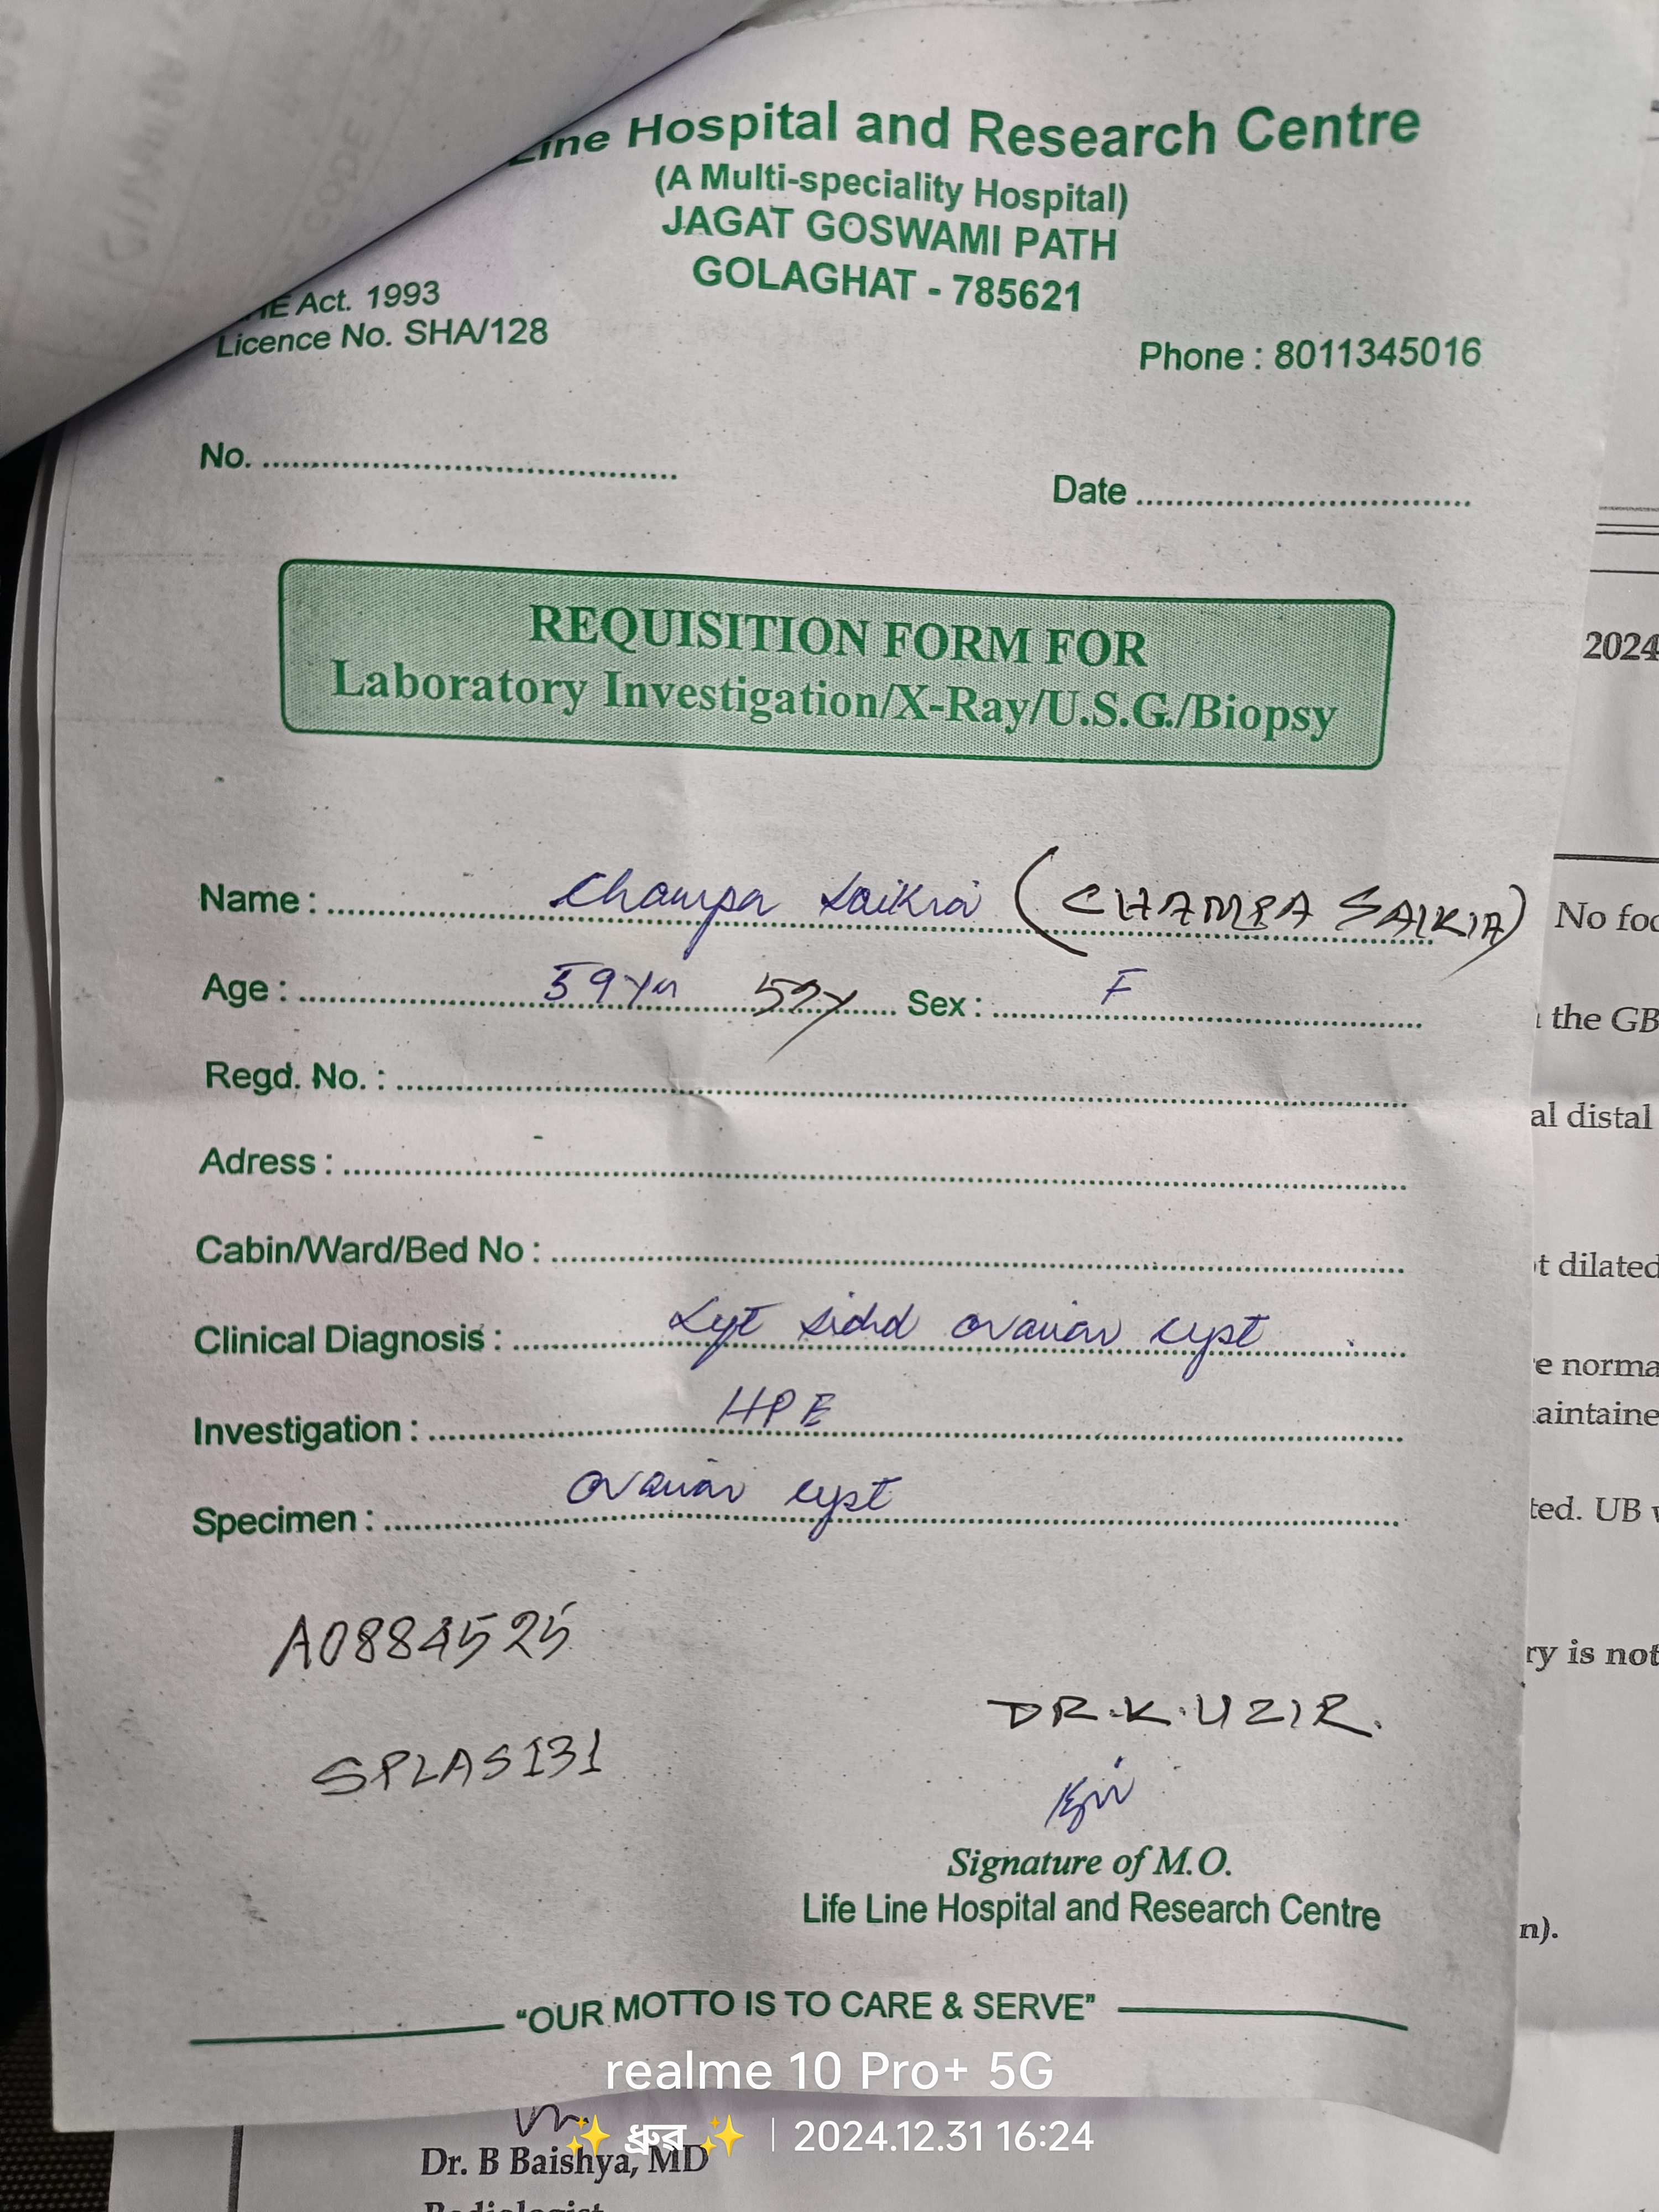 Line Hospital and Research Centre
(A Multi-speciality Hospital)
JAGAT GOSWAMI PATH
GOLAGHAT - 785621
Act. 1993
Licence No. SHA/128
Phone : 8011345016
No.
Date
REQUISITION FORM FOR
Laboratory Investigation/X-Ray/U.S.G./Biopsy
Name : Champa Saikia (CHAMPA SAIKIA)
Age : 59 yrs 59y Sex : F
Regd. No. :
Adress :
Cabin/Ward/Bed No :
Clinical Diagnosis : sided ovarian cyst
Investigation : HPE
Specimen : ovarian cyst
A0884525
SPLAS131
DR.K.UZIR.
Signature of M.O.
Life Line Hospital and Research Centre
"OUR MOTTO IS TO CARE & SERVE"
2024
No
the GB
al distal
t dilated
e norma
aintaine
ted. UB
ry is not
n).
realme 10 Pro+ 5G
✨ ध्रুব ✨ | 2024.12.31 16:24
Dr. B Baishya, MD
Radiologist